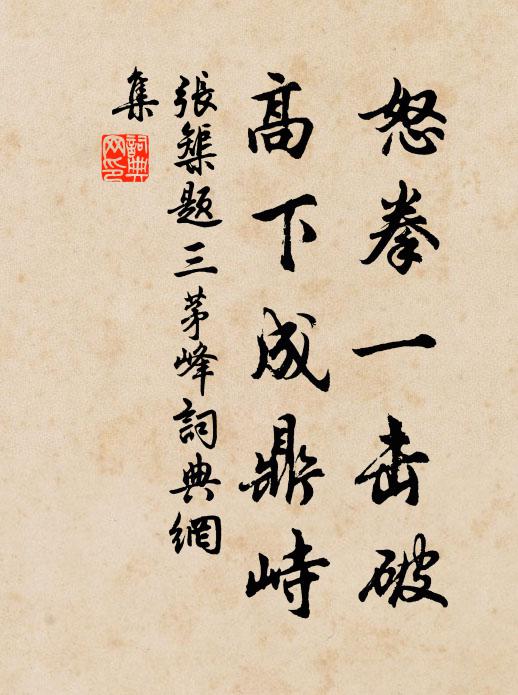 怒拳一击破
高下成鼎峙
張榘題三茅峰詞典網
集
詞典网印